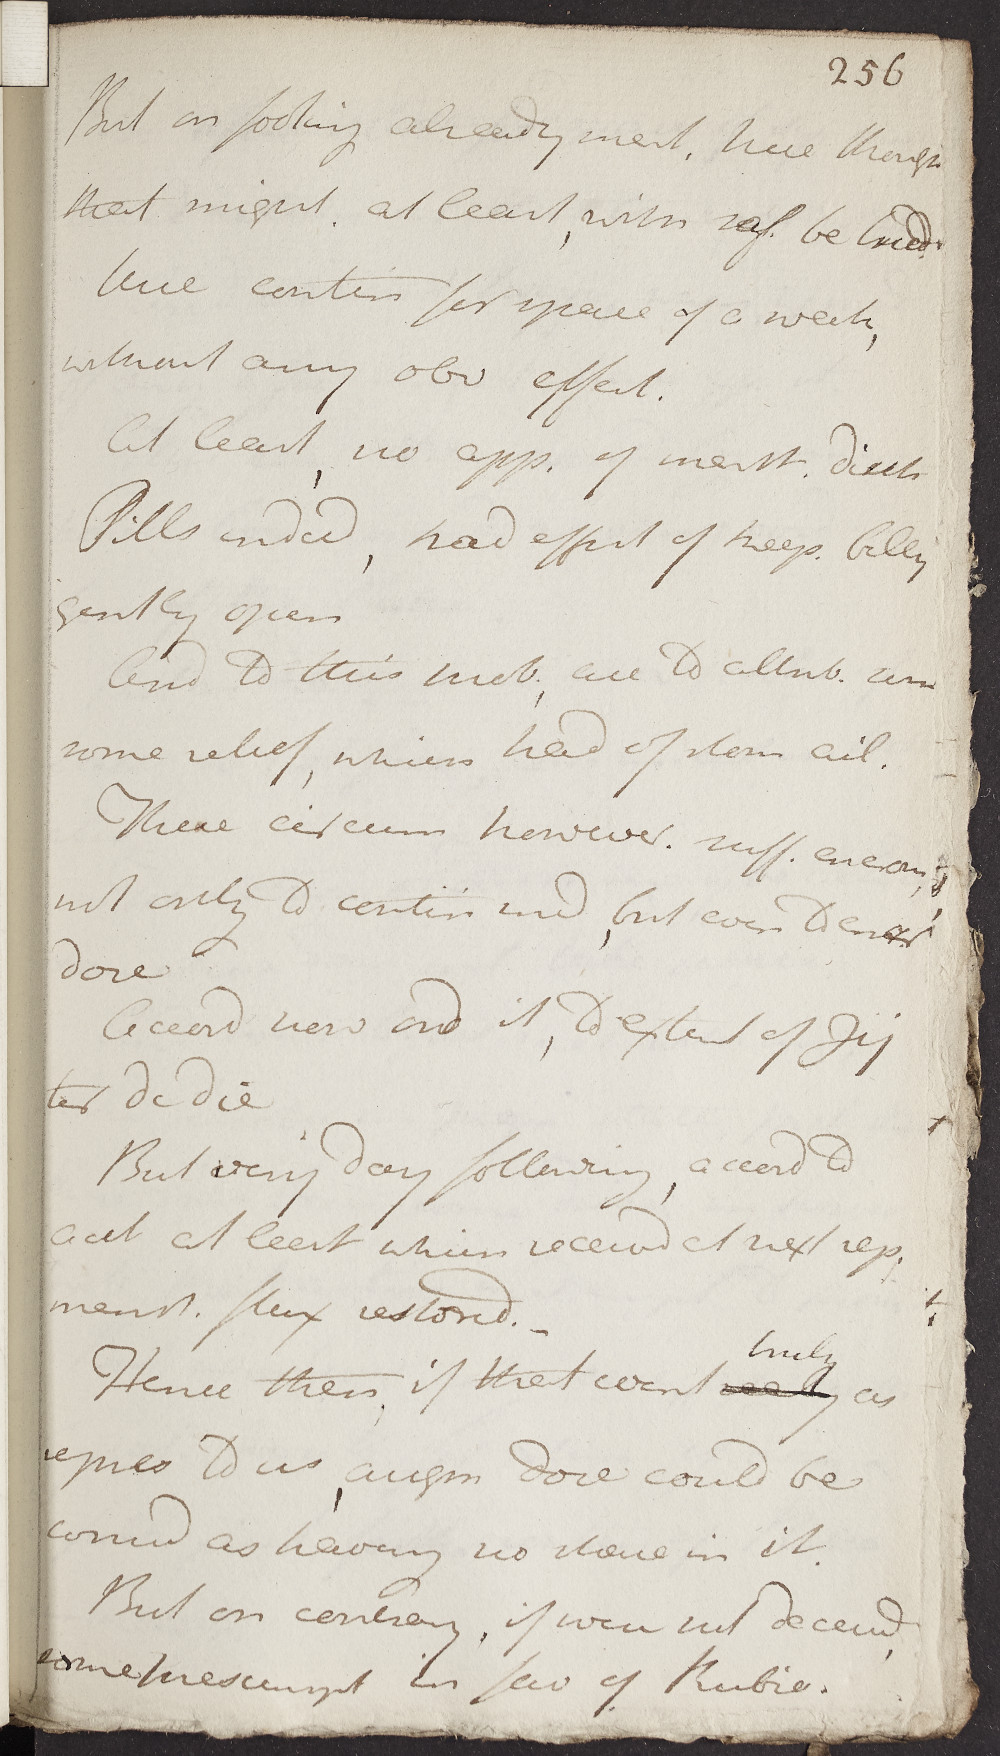 256
But on footing already ment. here though
that might. at least, with saf. be tried.
here contin for space of a week,
without any obv effect.
At least, no app. of menst. disch
Pills indeed, had effect of keep. belly
gently open
And to this sneb, are to attrib. 
some relief, which had of stom ail.
These circum however. suff. encour,
not only to contin med, but even to encr
dose
Accord now ord it, to extent of ʒij
ter de die
But very day following, accord to
acct at least which received at next rep,
menst. flux restored. _
Hence then, if that event truly as
repres to us, augm dose could be
consid as having no share in it.
But on contrary, if were not deceived,
some presumpt in fav of Rubia.